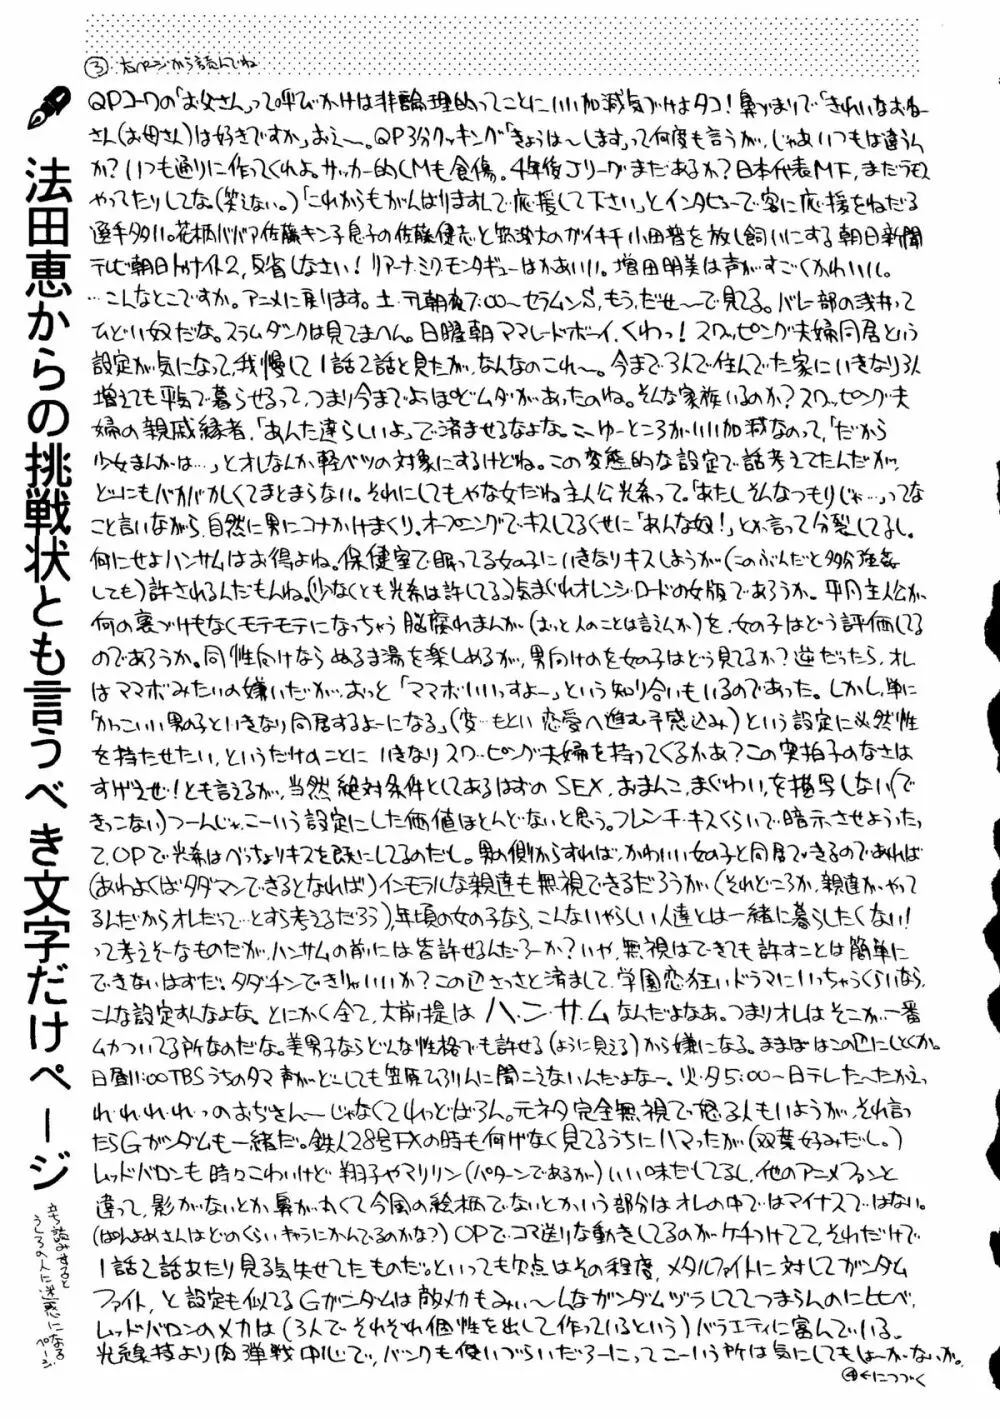 ③ 右ページから読んでね
QPコーワの「お父さん」って呼びかけは非論理的ってことにいい加減気づけよタコ!鼻づまりで「きれいなお母
さん(お母さん)は好きですか」おえ〜。QP3分クッキング「きょうは〜します」って何度も言うが、じゃあいつもは違うん
か?いつも通りに作ってくれよ。サッカー的CMも食傷。4年後Jリーグまだあるか?日本代表MF、まだラモス
やってたりしてな。(笑えない。)「これからもがんばりますんで応援して下さい」とインタビューで客に応援をねだる
選手多い。花柄ババア佐藤キン子息子の佐藤健志と筑波大のガイキチ小田晋を放し飼いにする朝日新聞
テレビ朝日トゥナイト2、反省しなさい!リアーナ・ミク・モンタギューはかあいい。増田明美は声がすごくかわいい。
…こんなとこですか。アニメに戻ります。土・テレ朝夜7:00〜セラムンS、もう、だせ〜で見てる。バレー部の浅井って
ひどい奴だな。スラムダンクは見てまへん。日曜朝ママレードボーイ、くわっ!スワッピング夫婦同居という
設定が気になって、我慢して1話2話と見たが、なんなのこれ〜。今まで3人で住んでた家にいきなり3人
増えても平気で暮らせるって、つまり今までよほどムダがあったのね。そんな家族いるのか?スワッピング夫
婦の親戚縁者、「あんた達らしいよ」で済ませるなよな。こーゆーところがいい加減なのって、「だから
少女まんがは…」とオレなんか軽ベツの対象にするけどね。この変態的な設定で話考えてたんだが、
どーにもバカバカしくてまとまらない。それにしてもやな女だね主人公光希って。「あたしそんなつもりじゃ…」ってな
こと言いながら、自然に男にコナかけまくり。オープニングでキスしてるくせに「あんな奴!」とか言って分裂してるし。
何にせよハンサムはお得よね。保健室で眠ってる女の子にいきなりキスしようが(このぶんだと多分強姦
しても)許されるんだもんね。(少なくとも光希は許してる)きまぐれオレンジロードの女版であろうか。平凡主人公が
何の裏づけもなくモテモテになっちゃう脳腐れまんが(おっと人のことは言えんか)を、女の子はどう評価してる
のであろうか。同性向けならぬるま湯を楽しめるが、男向けのを女の子はどう見てるか?逆だったら、オレ
はママボみたいの嫌いだが、おっと「ママボいいっすよ〜」という知り合いもいるのであった。しかし、単に
「かっこいい男の子といきなり同居するよーになる」(変…もとい恋愛へ進む予感込み)という設定に必然性
を持たせたい、というだけのことにいきなりスワッピング夫婦を持ってくるかあ?この突拍子のなさは
すげえぜ!とも言えるが、当然絶対条件としてあるはずのSEX、おまんこ、まぐわい、を描写しない(で
きっこない)つーんじゃ、こーいう設定にした価値ほとんどないと思う。フレンチ・キスくらいで暗示させようたっ
て、OPで光希はべっちょりキスを既にしてるのだし。男の側からすれば、かわいい女の子と同居できるのであれば
(あわよくばタダマンできるとなれば)インモラルな親達も無視できるだろうが、(それどころか、親達がやって
るんだからオレだって…とすら考えるだろう)年頃の女の子なら、こんないやらしい人達とは一緒に暮らしたくない!
って考えそーなものだが、ハンサムの前には皆許せるんだろーか?いや、無視はできても許すことは簡単に
できないはずだ。タダチンできりゃいいか?この辺さっさと済まして、学園恋狂いドラマにいっちゃうくらいなら、
こんな設定すんなよな。とにかく全て、大前提はハ・ン・サ・ムなんだよなあ。つまりオレはそこが一番
ムカついてる所なのだな。美男子ならどんな性格でも許せる(ように見える)から嫌になる。ままぼはこの辺にしとくか。
日昼11:00TBSうちのタマ声がどーしても笠原ひろりんに聞こえないんだよなー。火・夕5:00〜日テレた〜たかえっ
れ・れ・れ・れ・っのおぢさん〜じゃなくてれっどばろん。元ネタ完全無視で怒る人もいようが、それ言っ
たらGガンダムも一緒だ。鉄人28号FXの時も何げなく見てるうちにハマったが(双葉好みだし。)
レッドバロンも時々こわいけど翔子やマリリン(パターンであるが)いい味だしてるし、他のアニメファンと
違って、影がないとか鼻が丸くて今風の絵柄でないとかいう部分はオレの中ではマイナスではない。
(ぱんよめさんはどのくらいキャラにかんでるのかな?)OPでコマ送りな動きしてるのがケチつけてて、それだけで
1話2話あたり見る気失せてたものだ。といっても欠点はその程度、メタルファイトに対してガンダム
ファイト、と設定も似てるGガンダムは敵メカもみぃ〜んなガンダムヅラしててつまらんのに比べ、
レッドバロンのメカは(3人でそれぞれ個性を出して作っているという)バラエティに富んでいる。
光線技より肉弾戦中心で、バンクも使いづらいだろーにってこーいう所は気にしてもしょーがないか。
④へつづく
法田恵からの挑戦状とも言うべき文字だけページ
立ち読みすると
うしろの人に迷惑になる
ページ